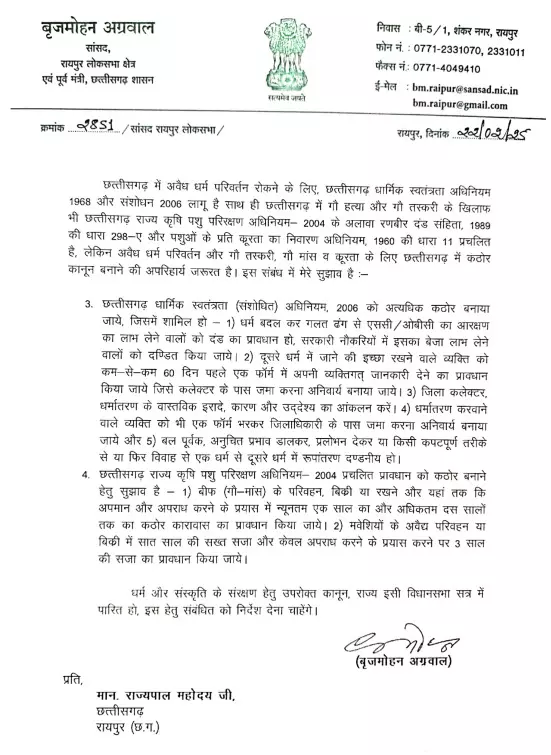 बृजमोहन अग्रवाल
सांसद,
रायपुर लोकसभा क्षेत्र
एवं पूर्व मंत्री, छत्तीसगढ़ शासन
सत्यमेव जयते
निवास : बी-5/1, शंकर नगर, रायपुर
फोन नं. : 0771-2331070, 2331011
फैक्स नं.: 0771-4049410
ई-मेल : bm.raipur@sansad.nic.in
bm.raipur@gmail.com
क्रमांक 2851/सांसद रायपुर लोकसभा/
रायपुर, दिनांक 22/02/25
छत्तीसगढ़ में अवैध धर्म परिवर्तन रोकने के लिए, छत्तीसगढ़ धार्मिक स्वतंत्रता अधिनियम
1968 और संशोधन 2006 लागू है साथ ही छत्तीसगढ़ में गौ हत्या और गौ तस्करी के खिलाफ
भी छत्तीसगढ़ राज्य कृषि पशु परिरक्षण अधिनियम– 2004 के अलावा रणबीर दंड संहिता, 1989
की धारा 298–ए और पशुओं के प्रति कूरता का निवारण अधिनियम, 1960 की धारा 11 प्रचलित
है, लेकिन अवैध धर्म परिवर्तन और गौ तस्करी, गौ मांस व कूरता के लिए छत्तीसगढ़ में कठोर
कानून बनाने की अपरिहार्य जरूरत है। इस संबंध में मेरे सुझाव है :–
3. छत्तीसगढ़ धार्मिक स्वतंत्रता (संशोधित) अधिनियम, 2006 को अत्यधिक कठोर बनाया
जाये, जिसमें शामिल हो – 1) धर्म बदल कर गलत ढंग से एससी/ओबीसी का आरक्षण
का लाभ लेने वालों को दंड का प्रावधान हो, सरकारी नौकरियों में इसका बेजा लाभ लेने
वालों को दण्डित किया जाये। 2) दूसरे धर्म में जाने की इच्छा रखने वाले व्यक्ति को
कम–से–कम 60 दिन पहले एक फॉर्म में अपनी व्यक्तिगत् जानकारी देने का प्रावधान
किया जाये जिसे कलेक्टर के पास जमा करना अनिवार्य बनाया जाये। 3) जिला कलेक्टर,
धर्मातरण के वास्तविक इरादे, कारण और उद्देश्य का आंकलन करें। 4) धर्मातरण करवाने
वाले व्यक्ति को भी एक फॉर्म भरकर जिलाधिकारी के पास जमा करना अनिवार्य बनाया
जाये और 5) बल पूर्वक, अनुचित प्रभाव डालकर, प्रलोभन देकर या किसी कपटपूर्ण तरीके
से या फिर विवाह से एक धर्म से दूसरे धर्म में रूपांतरण दण्डनीय हो।
4. छत्तीसगढ़ राज्य कृषि पशु परिरक्षण अधिनियम– 2004 प्रचलित प्रावधान को कठोर बनाने
हेतु सुझाव है – 1) बीफ (गौ–मांस) के परिवहन, बिकी या रखने और यहां तक कि
अपमान और अपराध करने के प्रयास में न्यूनतम एक साल का और अधिकतम दस सालों
तक का कठोर कारावास का प्रावधान किया जाये। 2) मवेशियों के अवैद्य परिवहन या
बिकी में सात साल की सख्त सजा और केवल अपराध करने के प्रयास करने पर 3 साल
की सजा का प्रावधान किया जाये।
धर्म और संस्कृति के संरक्षण हेतु उपरोक्त कानून, राज्य इसी विधानसभा सत्र में
पारित हो, इस हेतु संबंधित को निर्देश देना चाहेंगे।
(बृजमोहन अग्रवाल)
प्रति,
मान. राज्यपाल महोदय जी,
छत्तीसगढ़
रायपुर (छ.ग.)